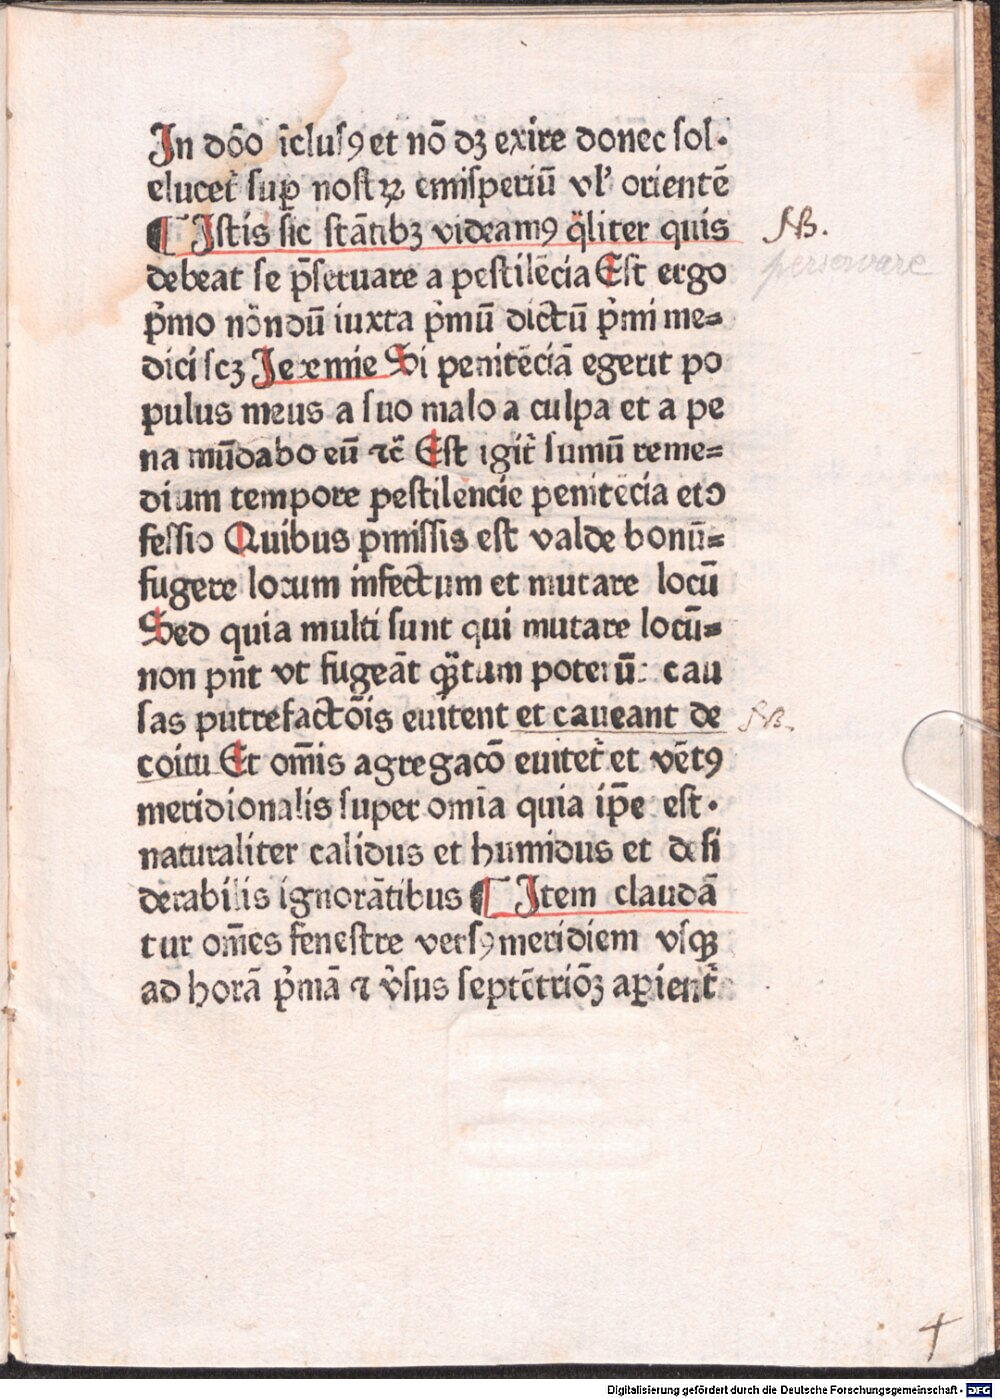 In dōo īcluſꝰ et nō dꝫ exire donec ſol·
elucet̄ ſuꝑ noſtꝝ emiſperiū vl’ orientē
¶ Iſtis ſic ſtātibꝫ videamꝰ q̄liter quis
NB.
debeat se p̄ſeruare a peſtilēcia Eſt ergo
perservare
p̄mo nōndū iuxta p̄mū dictū p̄mi me=
dici ſcꝫ Jeremie Si penitēciā egerit po
pulus meus a ſuo malo a culpa et a pe
na mūdabo eū ⁊c̄ Eſt igit̄ ſumū reme=
dium tempore peſtilencie penitēcia et ↄ
feſſio Quibus p̄miſſis eſt valde bonū=
fugere locum infectum et mutare locū
Sed quia multi ſunt qui mutare locū=
non pn̄t vt fugeāt q̄ꝫtum poterūt cau
ſas putrefactōis euitent et caueant de
NB.
coitu Et om̄is agregacō euitet̄ et vētꝰ
meridionalis ſuper omīa quia ip̄e eſt·
naturaliter calidus et humidus et deſi
derabilis ignorātibus ¶ Item claudā
tur om̄es feneſtre verſꝰ meridiem vſqꝫ
ad horā p̄mā ⁊ v̄ſus ſeptētriōꝫ aꝑient̄
4
Digitalisierung gefördert durch die Deutsche Forschungsgemeinschaft · DFG